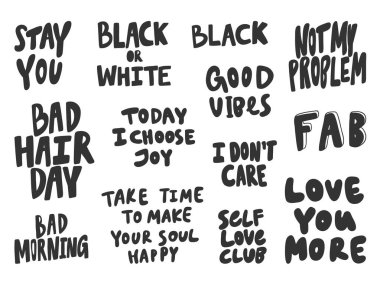 STAY
YOU
BLACK
OR
WHITE
BLACK
NOT MY
PROBLEM
GOOD
VIBES
BAD
HAIR
DAY
TODAY
I CHOOSE
JOY
FAB
I DON'T
CARE
TAKE TIME
TO MAKE
YOUR SOUL
HAPPY
LOVE
YOU
MORE
BAD
MORNING
SELF
LOVE
CLUB